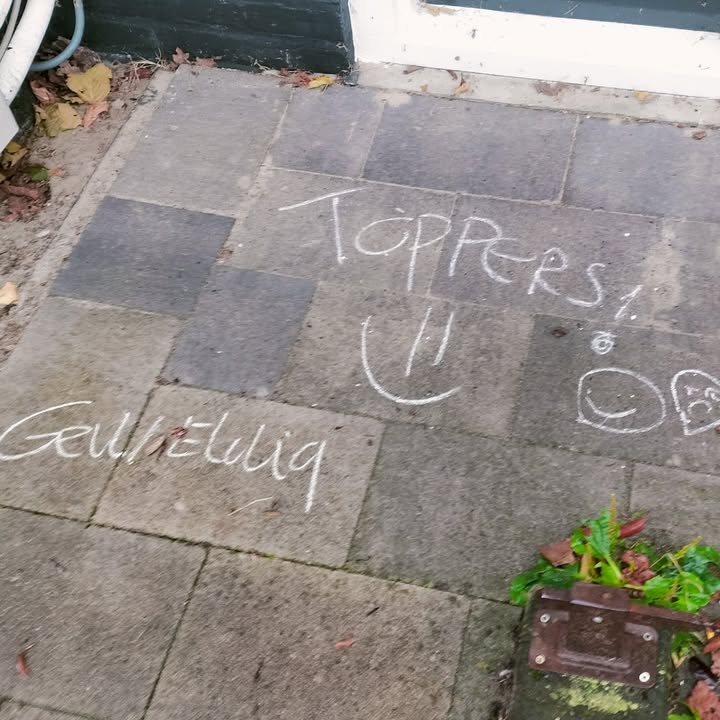 TOPPERS!
GeWEldig